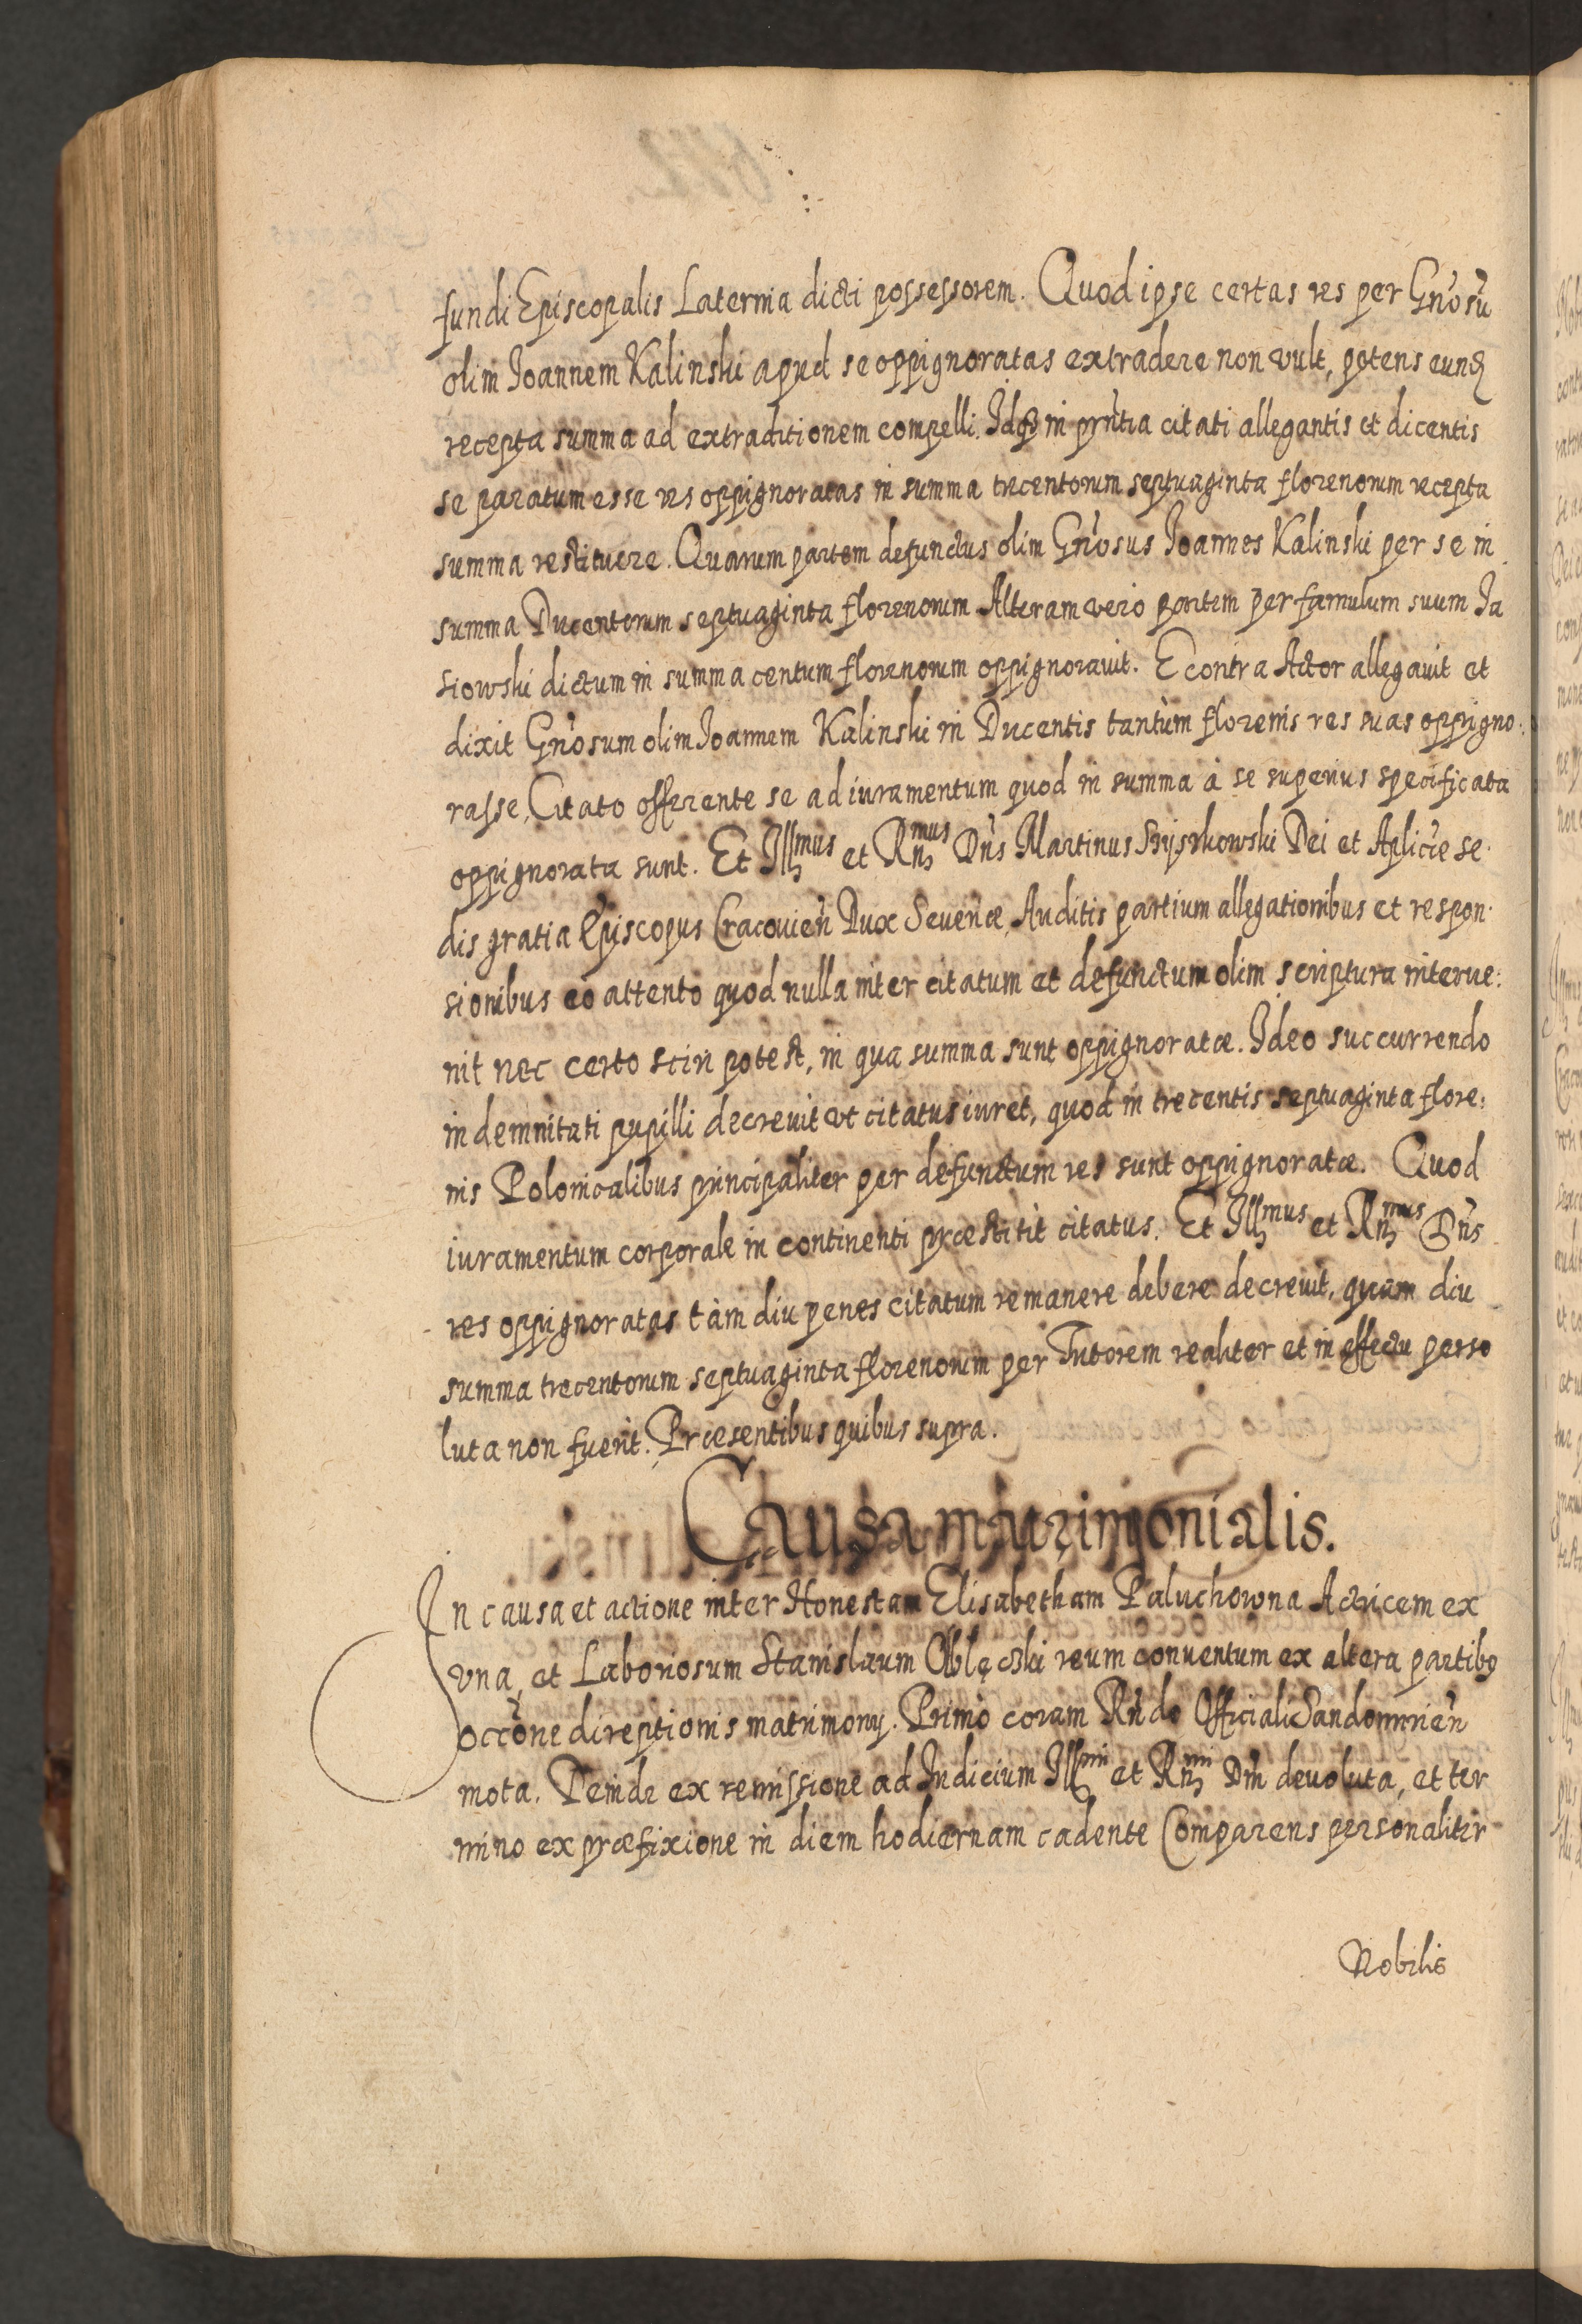 fundi Episcopalis Laternia dicti possessorem. Quod ipse certas res per Gn̄osū
olim Ioannem Kalinski apud se oppignoratas extradere non vult, petens eund̄
recepta summa ad extraditionem compelli. Idq̄ in pn̄tia citati allegantis et dicentis
se paratum esse res oppignoratas in summa trecentorum septuaginta florenorum recepta
summa restituere. Quarum partem defunctus olim Gn̄osus Ioannes Kalinski per se in
summa Ducentorum septuaginta florenorum Alteram vero partem per famulum suum Ja
siowski dictum in summa centum florenorum oppignorauit. E contra Actor allegauit et
dixit Gn̄osum olim Ioannem Kalinski in Ducentis tantùm florenis res suas oppigno:
rasse, Citato offerente se ad iuramentum quod in summa à se superius specificata
oppignorata sunt. Et Illmus et Rn̄mus Dn̄s Martinus Szyszkowski Dei et Aplicæ se
dis gratia Episcopus Cracouien̄ Dux Seueriæ, Auditis partium allegationibus et respon
sionibus eò attento quod nulla inter citatum et defunctum olim scriptura interue:
nit nec certo sciri potest, in qua summa sunt oppignoratæ. Ideo succurrendo
indemnitati pupilli decreuit vt citatus iuret, quod in trecentis septuaginta flore:
nis Polonicalibus principaliter per defunctum res sunt oppignoratæ. Quod
iuramentum corporale in continenti præstitit citatus. Et Illmus et Rn̄mus Dn̄s
res oppignoratas tàm diu penes citatum remanere debere decreuit, quam diu
summa trecentorum septuaginta florenorum per Tutorem realiter et in effectu perso
luta non fuerit. Præsentibus quibus supra.
Causa matrimonialis.
In causa et actione inter Honestam Elisabetham Paluchowna Actricem ex
vna, et Laboriosum Stanislaum Oblęcski reum conuentum ex altera partibq
occ̄one direptionis matrimony. Primò coram Rn̄do Officiali Sandomirien̄
mota. Deinde ex remissione ad Iudicium Illmi et Rn̄mi Dn̄i deuoluta, et ter
mino ex præfixione in diem hodiernam cadente Comparens personaliter
Nobilis